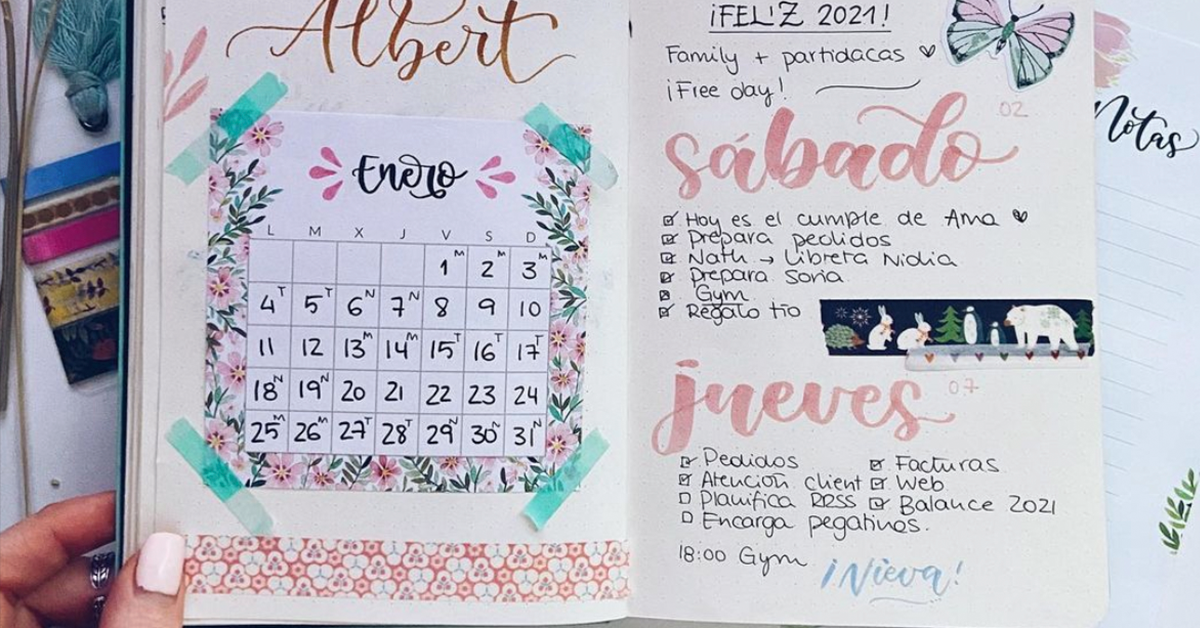 Albert
Enero
L M X J V S D
1M 2M 3M
4T 5T 6N 7N 8 9 10
11 12 13M 14M 15T 16T 17T
18N 19N 20 21 22 23 24
25M 26M 27T 28T 29N 30N 31N
¡FELIZ 2021!
Family + partidacas
¡Free day!
sábado 02
Hoy es el cumple de Ama
Prepara pedidos
Nath → Libreta Nidia
Prepara Soria
Gym
Regalo tío
jueves 07
Pedidos
Atención client
Planifica RRSS
Encarga pegatinas.
Facturas
Web
Balance 2021
18:00 Gym
¡Nieva!
Notas